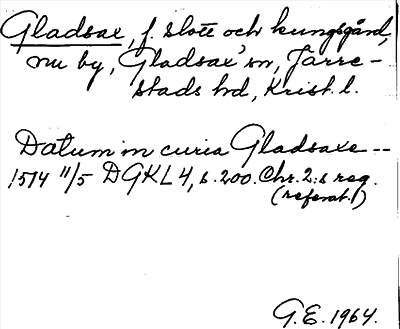 Gladsax, f. slott och kungsgård,
nu by, Gladsax' sn, Järre-
stads hd, Krist. l.
Datum in curia Gladsaxe --
1514 11/5 DGKL 4, s. 200. Chr. 2:s reg.
(referat!)
G.E. 1964.